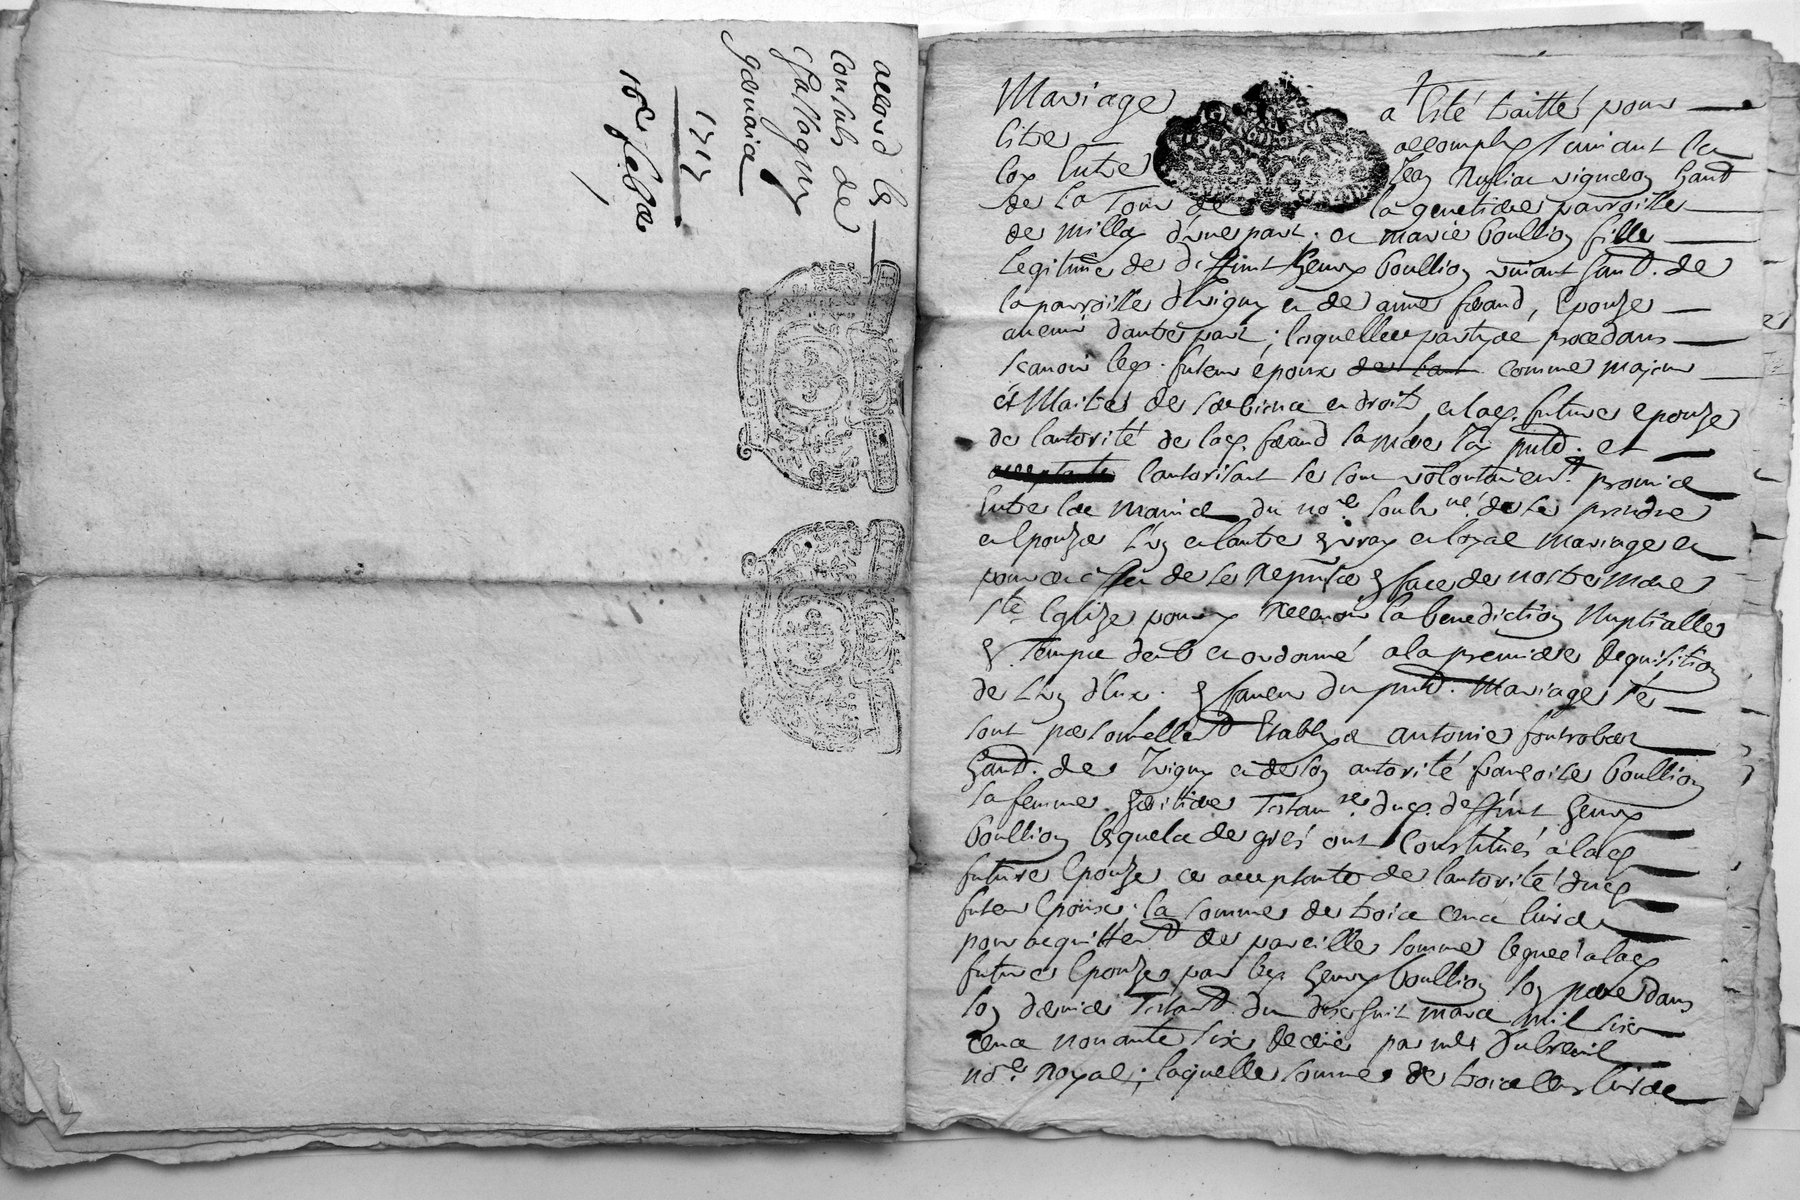 accord les
consuls de
1717
16e febr
Mariage a Esté traitté pour
Estre accomply suivant la
loy Entre Jean vigneron habt
de La Tour de la parroisse
de milly d'une part. et marie boullion fille
Legitime de deffunt henry boullion vivant habt. de
la parroisse d'Jvigny et de anne, Epouze
avenir dautre part; lesquelles partyes procedans
scavoir led. futeur époux de laut comme majeur
et Maitre de ses biens et droits, et lad. future epouze
de lautorité de lad. sa mere Jcy pnte. et
acceptante lautorisant se sont volontairemt. promis
Entre les mains du nore. soubsne. de se prendre
en Epouze L'un et lautre en vray et loyal mariage et
pour cet effet de se representer en face de nostre mere
Ste Eglize pour y Recevoir la benediction Nuptialle
En Temps deub et ordonné a la premiere Requisition
de L'un d'Eux. En faveur du pnt. Mariage Se
sont personnellemt Etablys antoine
habt. de Jvigny et de son autorité françoise boullion
sa femme heritiere Testamre. dud. deffunt henry
boullion lesquels de grés ont Constitués à lad
future Epouze ce acceptante de lautorité dud
futeur Epoux; la somme de trois cens livres
pour acquittemt de pareille somme leguée a lad
future Epouze par led. henry boullion son pere dans
son dernier Testamt. du dixhuit mars mil six
cens nonante six Receu par me Dubreuil
nore. Royal; laquelle somme de trois cens livres